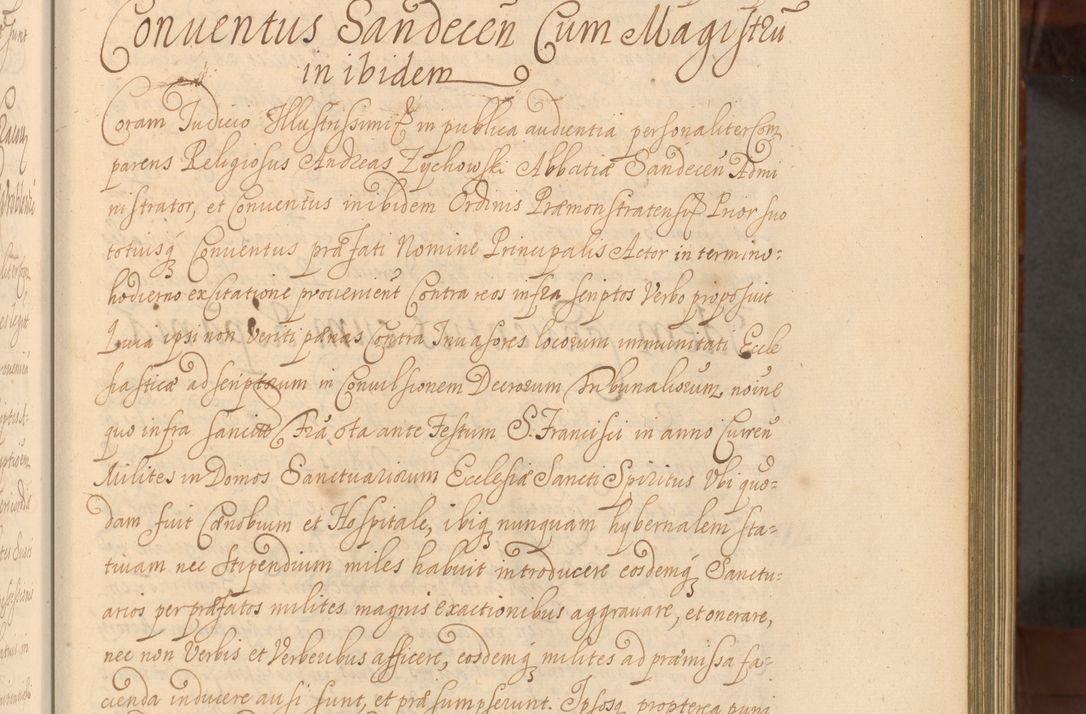 Conventus Sandecen Cum Magistru
in ibidem
Coram Judicio Illustrissimi & in publica audientia personaliter Com
parens Religiosus Andreas Zychowski Abbatiæ Sandecen Admi
nistrator, et Conventus inibidem Ordinis Præmonstratensis Prior suo
totiusq Conventus præfati Nomine Principalis Actor in termino:
hodierno ex Citatione proveniente Contra reos infra scriptos Verbo proposuit
Quia ipsi non Veriti pænas Contra Invasores locorum immunitati Eccle
siasticæ adscriptorum in Convulsionem Decrorum Tribunaliorum, noine
quo infra sancita Fra 6ta ante Festum S. Francisci in anno Curren
Milites in Domos Sanctuariorum Ecclesiæ Sancti Spiritus Ubi quo=
dam fuit Cænobium et Hospitale, ibiq nunquam hybernalem sta=
tivam nec Stipendium miles habuit introducere eosdemq Sanctu=
arios per præfatos milites magnis exactionibus aggravare, et onerare,
nec non Verbis et Verberibus afficere, eosdemq milites ad præmissa fa=
cienda inducere ausi sunt, et præsumpserunt. Ipsosq propterea puni